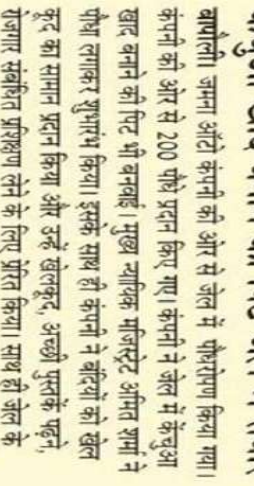 बाघोली। जमना ऑटो कंपनी की ओर से जेल में पौधरोपण किया गया।
कंपनी की ओर से 200 पौधे प्रदान किए गए। कंपनी ने जेल में केंचुआ
खाद बनाने की पिट भी बनवाई। मुख्य न्यायिक मजिस्ट्रेट अमित शर्मा ने
पौधा लगाकर शुभारंभ किया। इसके साथ ही कंपनी ने बंदियों को खेल
कूद का सामान प्रदान किया और उन्हें खेलकूद, अच्छी पुस्तकें पढ़ने,
रोजगार संबंधित प्रशिक्षण लेने के लिए प्रेरित किया। साथ ही जेल के